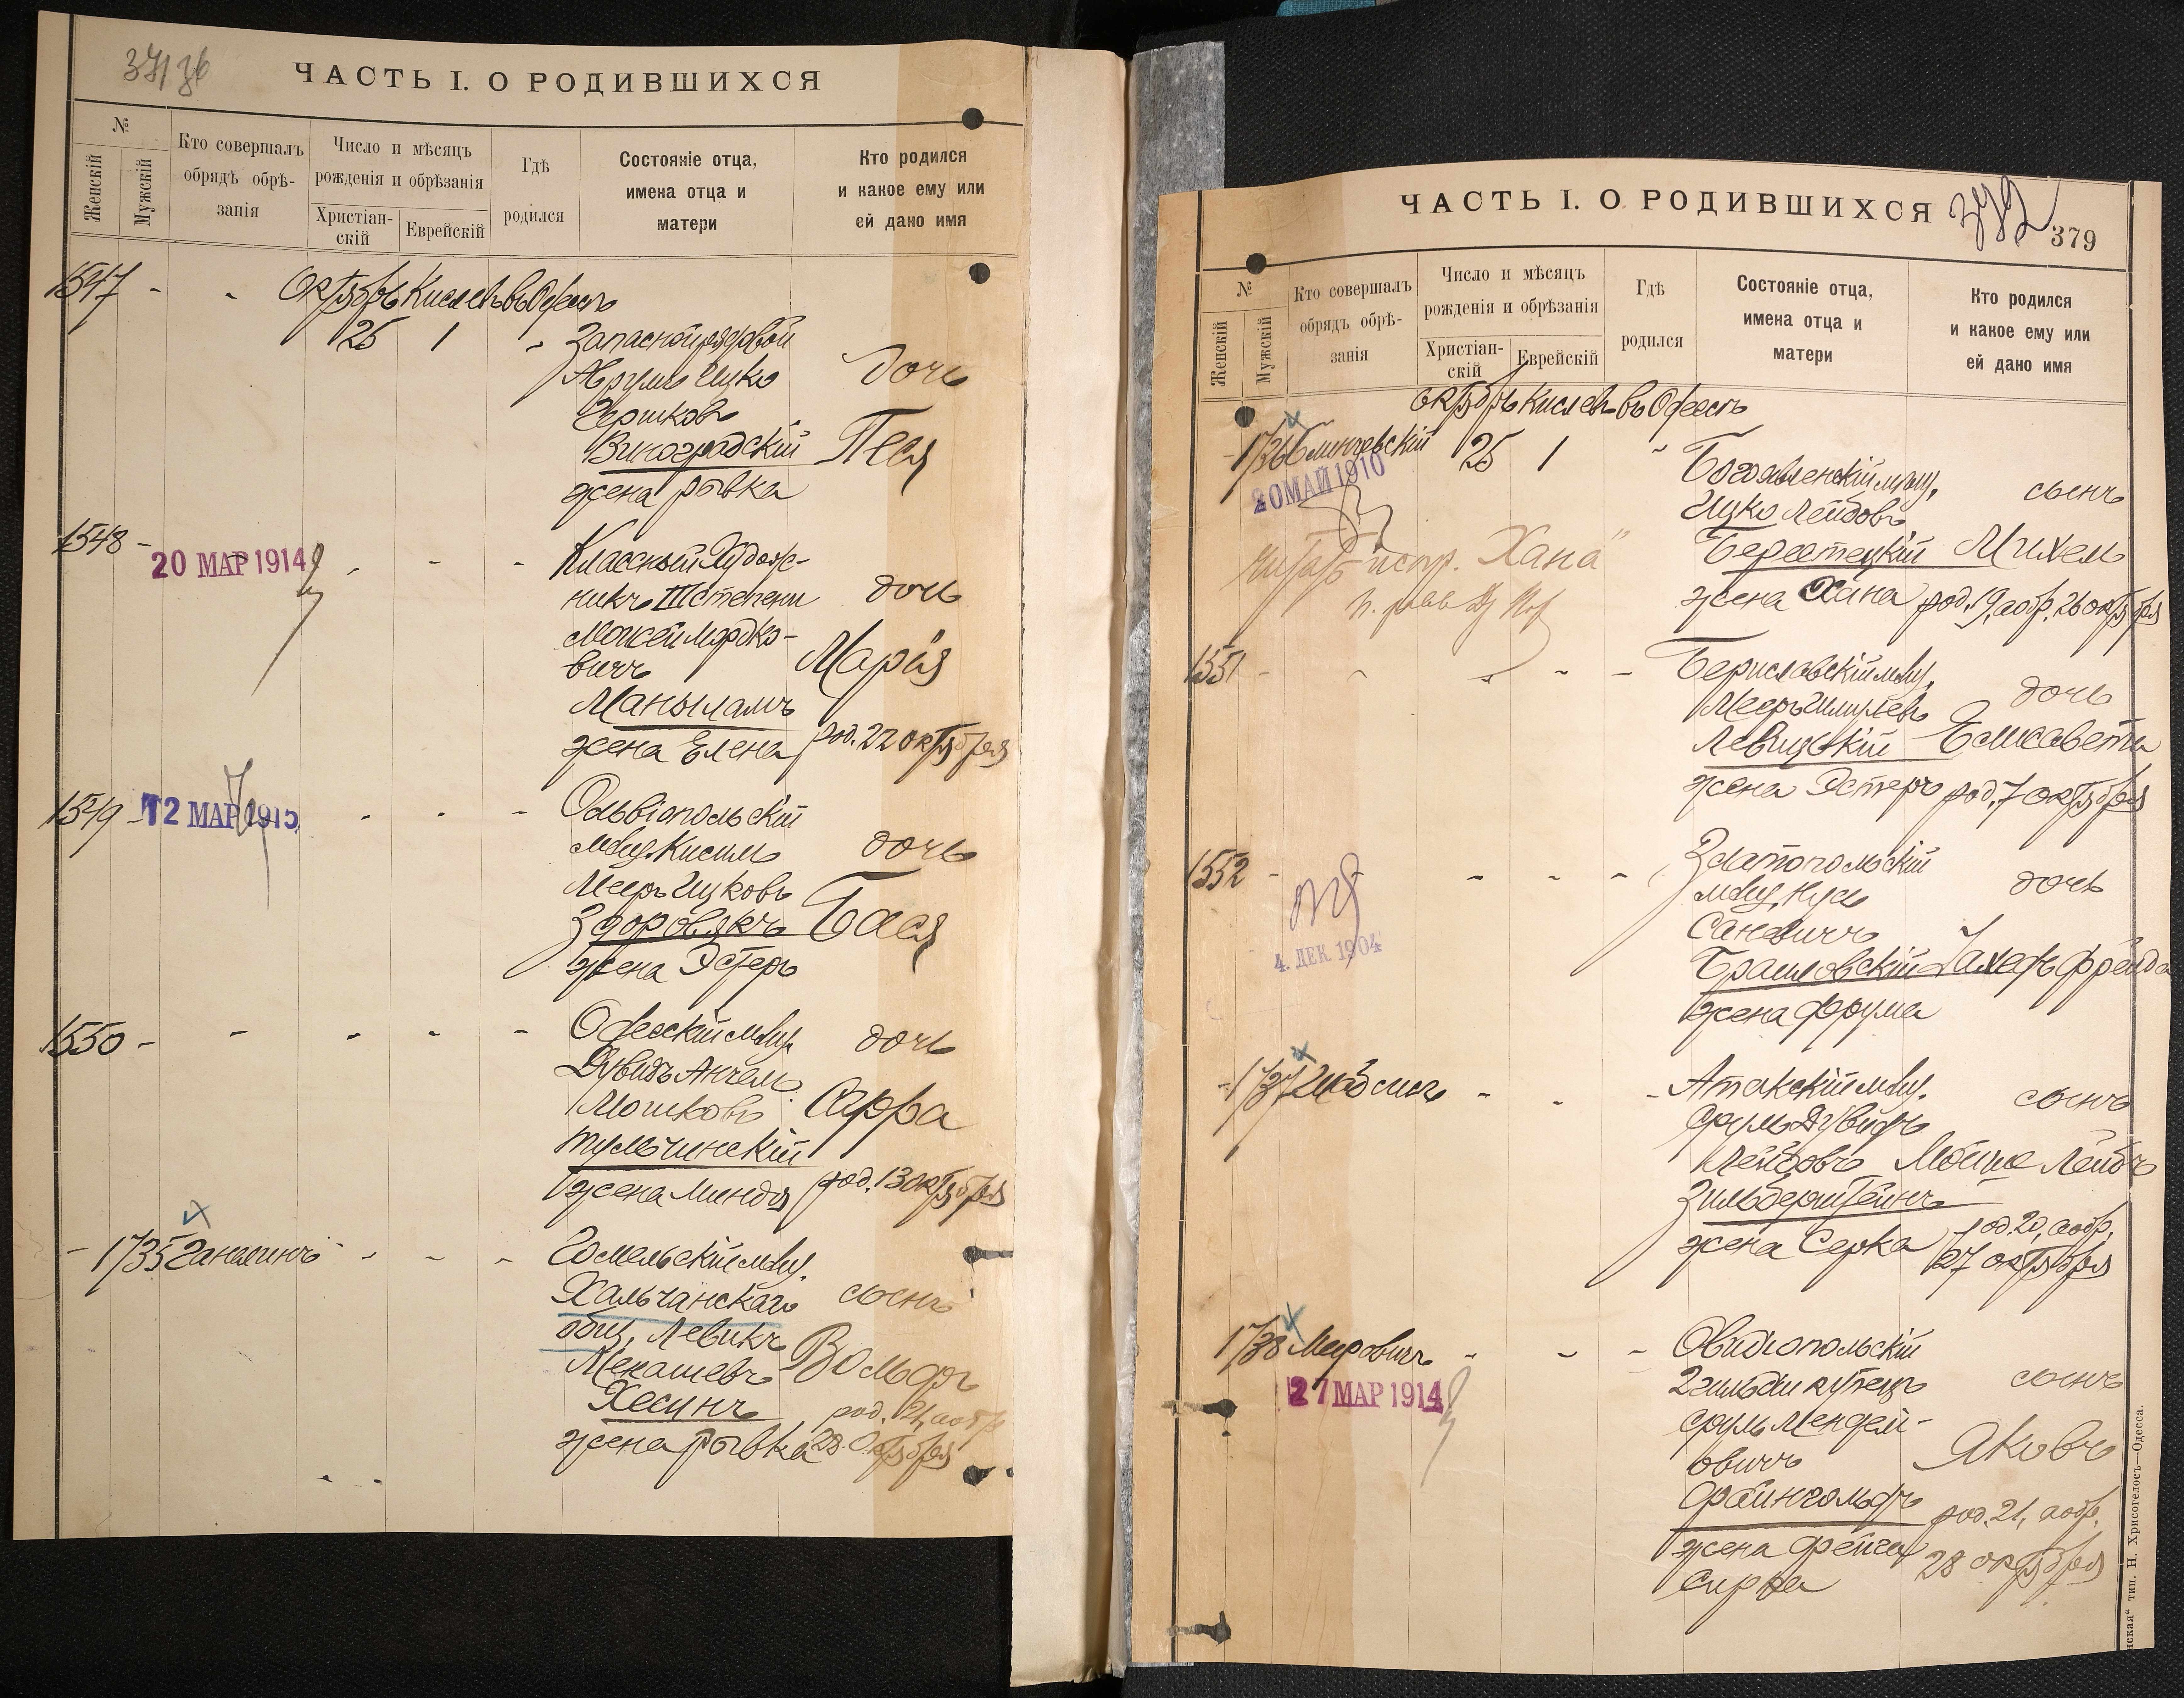 ЧАСТЬ I. О РОДИВШИХСЯ
№
Женскій
Мужскій
Кто совершалъ
обрядъ обрѣ-
занія
Число и мѣсяцъ
рожденія и обрѣзанія
Христіан-
скій
Еврейскій
Гдѣ
родился
Состояніе отца,
имена отца и
матери
Кто родился
и какое ему или
ей дано имя
1547 - - Октябрь Кислевъ въ Одессѣ
25 1 - Запасной рядовой
Срулъ Ицко дочь
Гершковъ
Виноградскій Песя
жена Рывка
1548 - - - - Классный Худож-
20 МАР 1914
никъ III степени дочь
Мойсей Мордко-
вичъ Марія
Маныламъ
жена Елена род. 22 октября
1549 - 12 МАР 1915 - - - Ольвіопольскій
мѣщ. Кисиль дочь
Мееръ Ицковъ
Здоровякъ Бася
жена Эстеръ
1550 - - - - - Одесскій мѣщ. дочь
Дувидъ Анчель
Мошковъ Сарра
Тульчинскій
жена Миндя род. 13 октября
- 1735 Ганелинъ - - - Гомельскій мѣщ.
Хальчанскаго сынъ
общ. Левикъ
Менашевъ Вольфъ
Хесинъ род. 21, аобр.
жена Рывка 28 Октября
ЧАСТЬ I. О РОДИВШИХСЯ
379
№
Женскій
Мужскій
Кто совершалъ
обрядъ обрѣ-
занія
Число и мѣсяцъ
рожденія и обрѣзанія
Христіан-
скій
Еврейскій
Гдѣ
родился
Состояніе отца,
имена отца и
матери
Кто родился
и какое ему или
ей дано имя
октябрь Кислевъ въ Одессѣ
- 1736 25 1 - Богоявленскій мѣщ.
20 МАЙ 1910 сынъ
Ицко Лейбовъ
испр. "Хана" Берестецкій Михель
жена Хана род. 19, аобр. 26 октября
1551 - - - - - Бериславскій мѣщ.
Мееръ Шмулевъ дочь
Левицкій Елисавета
жена Эстеръ род. 7 октября
1552 - - - - Златопольскій
мѣщ. Нусь дочь
4. ДЕК. 1904
Саневичъ
Браиловскій Фрейда
жена Фрума
- 1737 - - - Атакскій мѣщ.
Сруль Дувидъ сынъ
Лейбовъ Мойше Лейбъ
Зильберштейнъ
жена Серка род. 20, аобр.
27 октября
1738 Меировичъ - - - Овидіопольскій
27 МАР 1914
2 гильдіи купецъ сынъ
Сруль Мендел-
овичъ Яковъ
Файнгольдъ род. 21, аобр.
жена Фейга 28 октября
Сирка
тип. Н. Хрисогелосъ—Одесса.